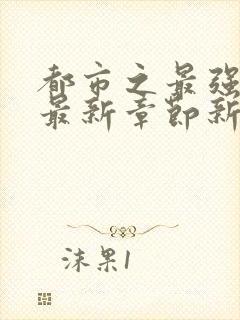 都市之最强
最新章节新
沫果1